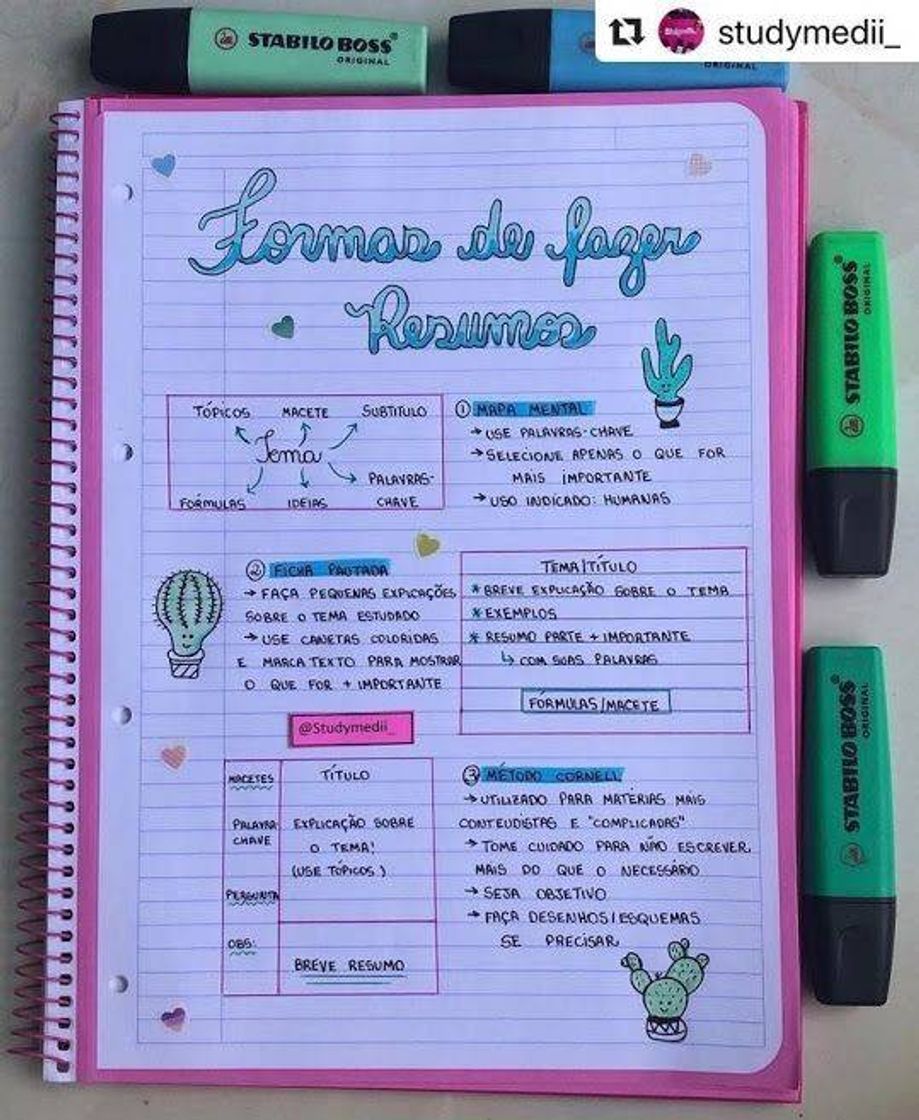 studymedii_
STABILO BOSS®
ORIGINAL
ORIGINAL
Formas de fazer
Resumos
TÓPICOS MACETE SUBTITULO
Tema
PALAVRAS-
CHAVE
FÓRMULAS IDEIAS
① MAPA MENTAL
→ USE PALAVRAS-CHAVE
→ SELECIONE APENAS O QUE FOR
MAIS IMPORTANTE
→ USO INDICADO: HUMANAS
② FICHA PAUTADA
→ FAÇA PEQUENAS EXPLICAÇÕES
SOBRE O TEMA ESTUDADO
→ USE CANETAS COLORIDAS
E MARCA TEXTO PARA MOSTRAR
O QUE FOR + IMPORTANTE
TEMA/TÍTULO
* BREVE EXPLICAÇÃO SOBRE O TEMA
* EXEMPLOS
* RESUMO PARTE + IMPORTANTE
↳ COM SUAS PALAVRAS
FÓRMULAS/MACETE
@Studymedii_
MACETES
PALAVRA-
CHAVE
PERGUNTA
OBS:
TÍTULO
EXPLICAÇÃO SOBRE
O TEMA!
(USE TÓPICOS)
BREVE RESUMO
③ MÉTODO CORNELL
→ UTILIZADO PARA MATÉRIAS MAIS
CONTEUDISTAS E "COMPLICADAS"
→ TOME CUIDADO PARA NÃO ESCREVER
MAIS DO QUE O NECESSÁRIO
→ SEJA OBJETIVO
→ FAÇA DESENHOS/ESQUEMAS
SE PRECISAR
STABILO BOSS®
ORIGINAL
STABILO BOSS®
ORIGINAL